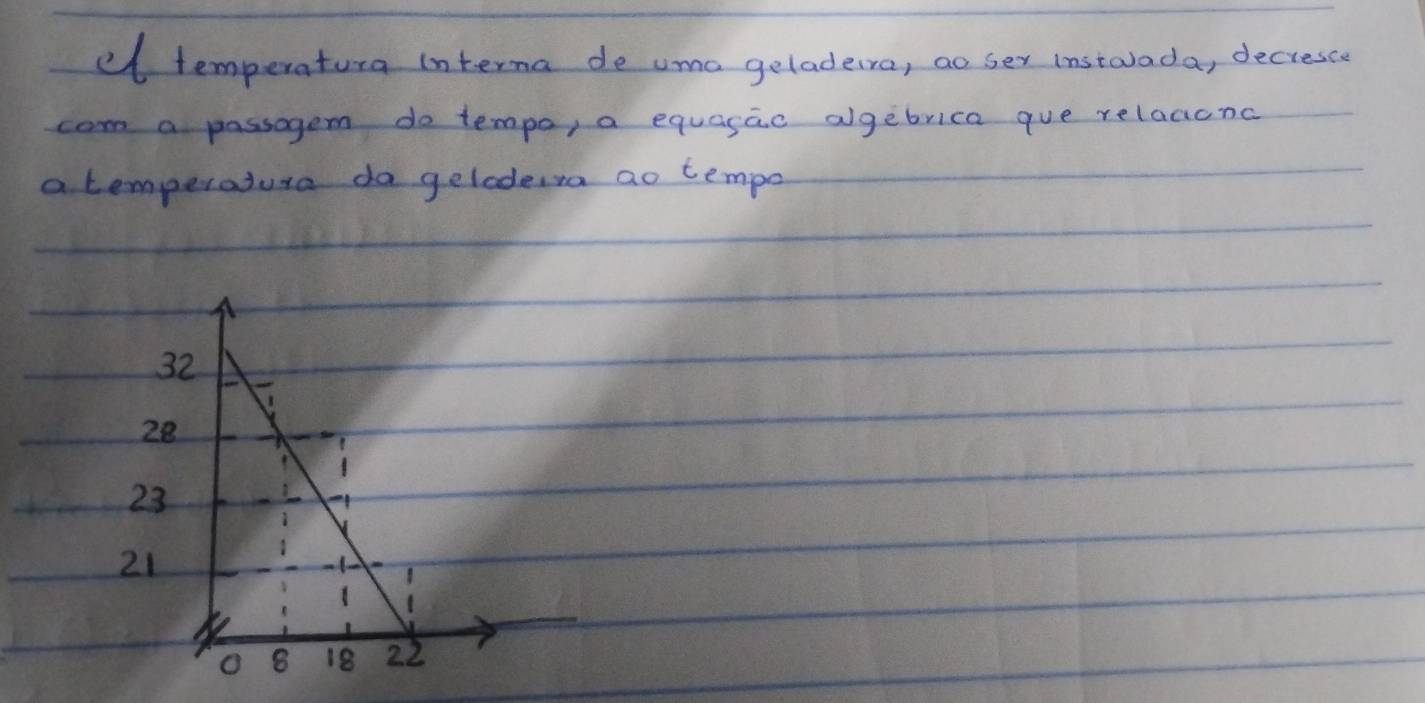 A temperatura interna de uma geladeira, ao ser instalada, decresce
com a passagem do tempo, a equação algébrica que relaciona
a temperatura da geladeira ao tempo
32
28
23
21
0 8 18 22